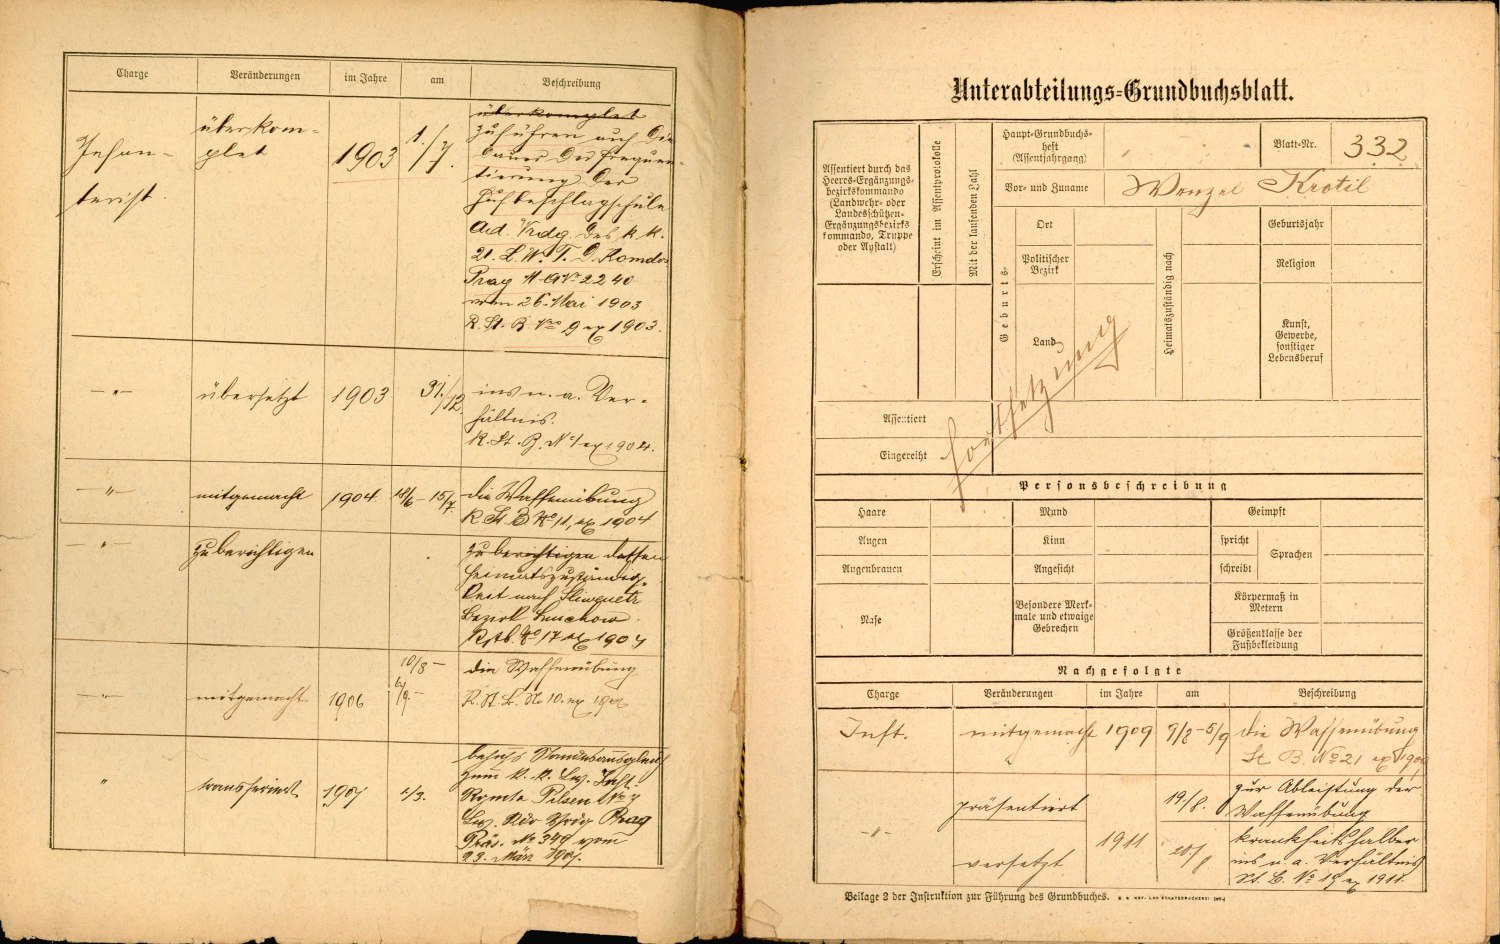 Charge Veränderungen im Jahre am Beschreibung
Infan-
terist
überkom-
plet
1903
1./7.
überkomplet
zuführen auf Die
Dauer Des Frequen-
tierung Der
Hufbeschlagschule
Ad. Vrdg. Des k. k.
21. L. W. T. D. Komdo.
Prag M. A. No 2240
vom 26. Mai 1903
R. St. B. No 9 ex 1903.
—"—
übersetzt
1903
31./12.
ins n. a. Ver-
hältnis.
R. St. B. No 1 ex 1904.
—"—
mitgemacht
1904
18/6 - 15/7.
die Waffenübung
R. St. B. No 11, ex 1904
—"—
zu berichtigen
zu berichtigen dessen
heimatszuständig-
keit nach
Bezirk
No 17 ex 1904
—"—
mitgemacht
1906
10/8 -
6/9. -
die Waffenübung
R. St. B. No 10. ex 1906
"
transferiert
1907
1/3.
behufs Standesausgleich
zum k. k. Lw. Inft.
Rgmte Pilsen No 7
Lw. Kdo Vrdg Prag
Präs. No 349 vom
23. März 1907.
Unterabteilungs-Grundbuchsblatt.
Assentiert durch das
Heeres-Ergänzungs-
bezirkskommando
(Landwehr- oder
Landesschützen-
Ergänzungsbezirks
kommando, Truppe
oder Anstalt)
Erscheint im Assentprotokolle
Mit der laufenden Zahl
Haupt-Grundbuchs-
heft
(Assentjahrgang)
Blatt-Nr.
332
Vor- und Zuname
Wenzel Krotil
Geburts-
Ort
Politischer
Bezirk
Land
Heimatszuständig nach
Geburtsjahr
Religion
Kunst,
Gewerbe,
sonstiger
Lebensberuf
Fortsetzung
Assentiert
Eingereiht
Personsbeschreibung
Haare Mund Geimpft
Augen Kinn spricht Sprachen
Augenbrauen Angesicht schreibt
Nase
Besondere Merk-
male und etwaige
Gebrechen
Körpermaß in
Metern
Größenklasse der
Fußbekleidung
Nachgefolgte
Charge Veränderungen im Jahre am Beschreibung
Inft.
mitgemacht
1909
9/8 - 5/9
die Waffenübung
St. B. No 21 ex 1909
—"—
präsentiert
1911
19./8.
zur Ableistung der
Waffenübung
versetzt
20/8
krankheitshalber
ins n. a. Verhältnis
St. B. No 19 ex 1911.
Beilage 2 der Instruktion zur Führung des Grundbuches. K. K. HOF- UND STAATSDRUCKEREI